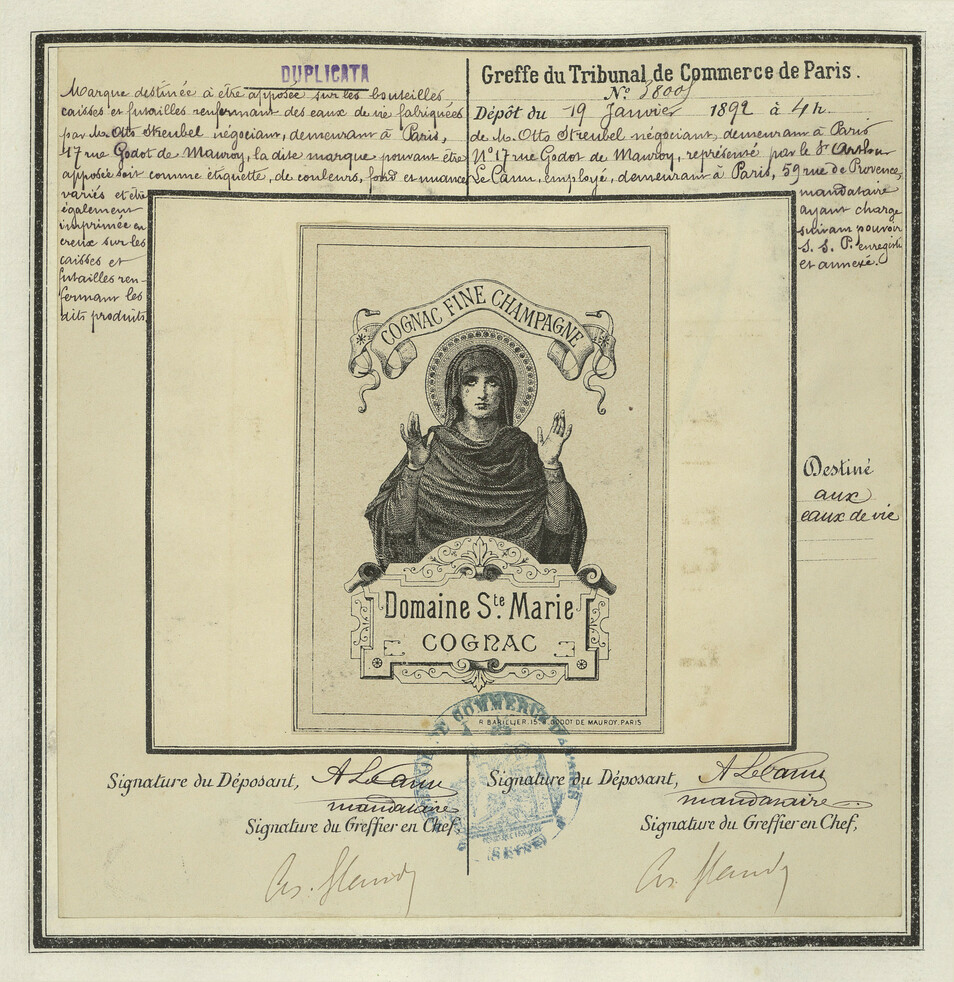 DUPLICATA
Marque destinée à être apposée sur les bouteilles
caisses et futailles renfermant des eaux de vie fabriquées
par M. Otto Streubel négociant, demeurant à Paris,
17 rue Godot de Mauroy, la dite marque pouvant être
apposée soit comme étiquette, de couleurs, fond et nuances
variés et être
également
imprimée en
creux sur les
caisses et
futailles ren-
fermant les
dits produits.
Greffe du Tribunal de Commerce de Paris.
N°
Dépôt du 19 Janvier 1892 à 4 h.
de M. Otto Streubel négociant, demeurant à Paris
N° 17 rue Godot de Mauroy, représenté par le Sr Arthur
Le Cann, employé, demeurant à Paris, 59 rue de Provence,
mandataire
ayant charge
suivant pouvoir
S. S. P. enregistré
et annexé.
COGNAC FINE CHAMPAGNE
Domaine Ste. Marie
COGNAC
R. BARILLIER, 15, R. GODOT DE MAUROY, PARIS
Destiné
aux
eaux de vie
Signature du Déposant, A Le Cann
mandataire
Signature du Greffier en Chef,
Signature du Déposant, A Le Cann
mandataire
Signature du Greffier en Chef,